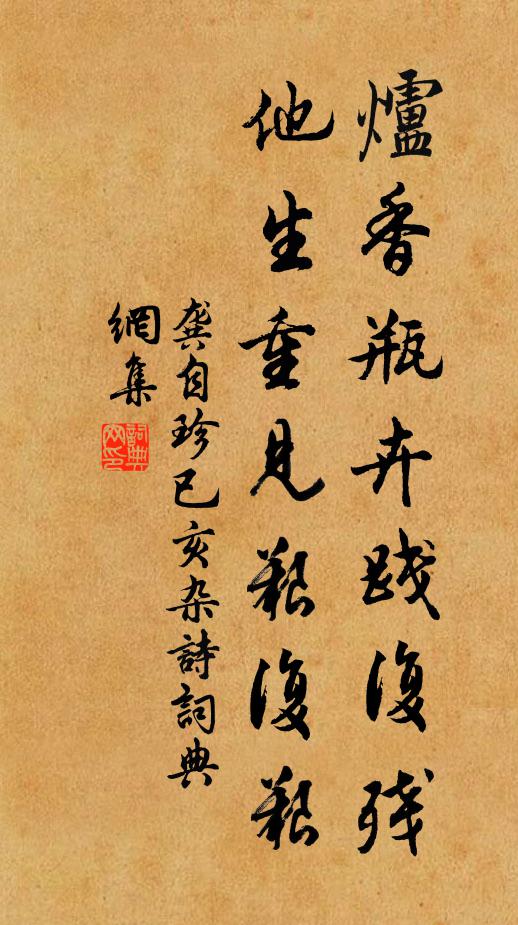 爐香瓶卉殘復殘
他生重見艱復艱
龔自珍己亥杂詩詞典
網集
詞典
网印